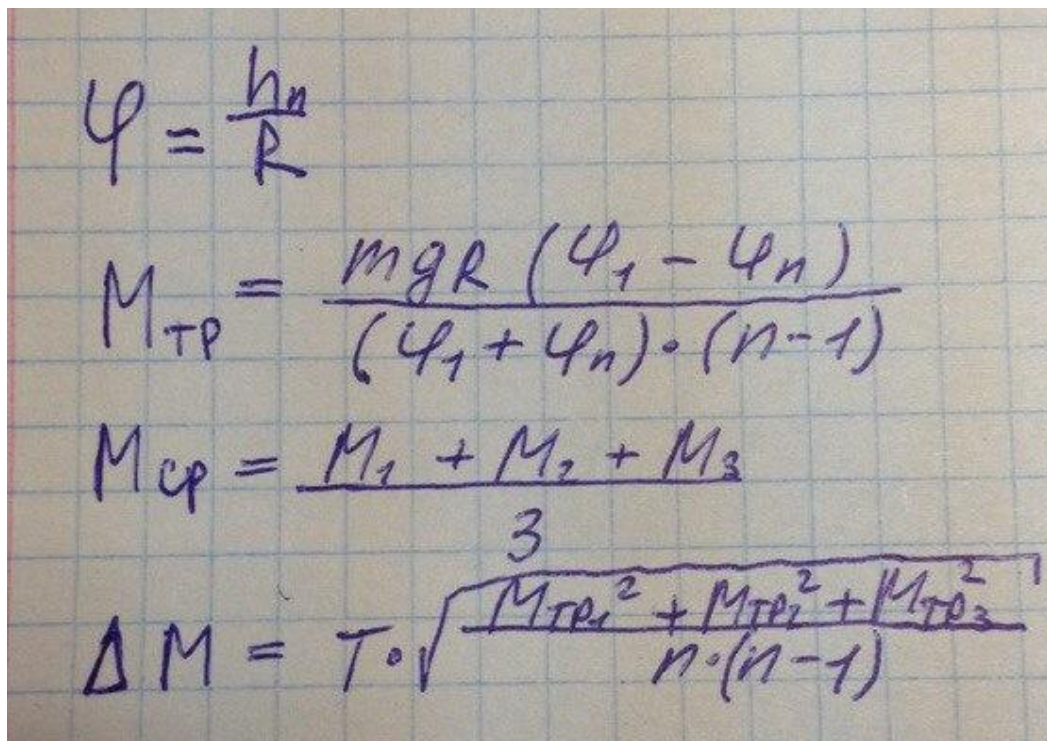 φ = hₙ / R
Mтр = mgR (φ₁ - φₙ) / (φ₁ + φₙ) · (n-1)
Mср = M₁ + M₂ + M₃ / 3
ΔM = T · √ Mтр₁² + Mтр₂² + Mтр₃² / n·(n-1)